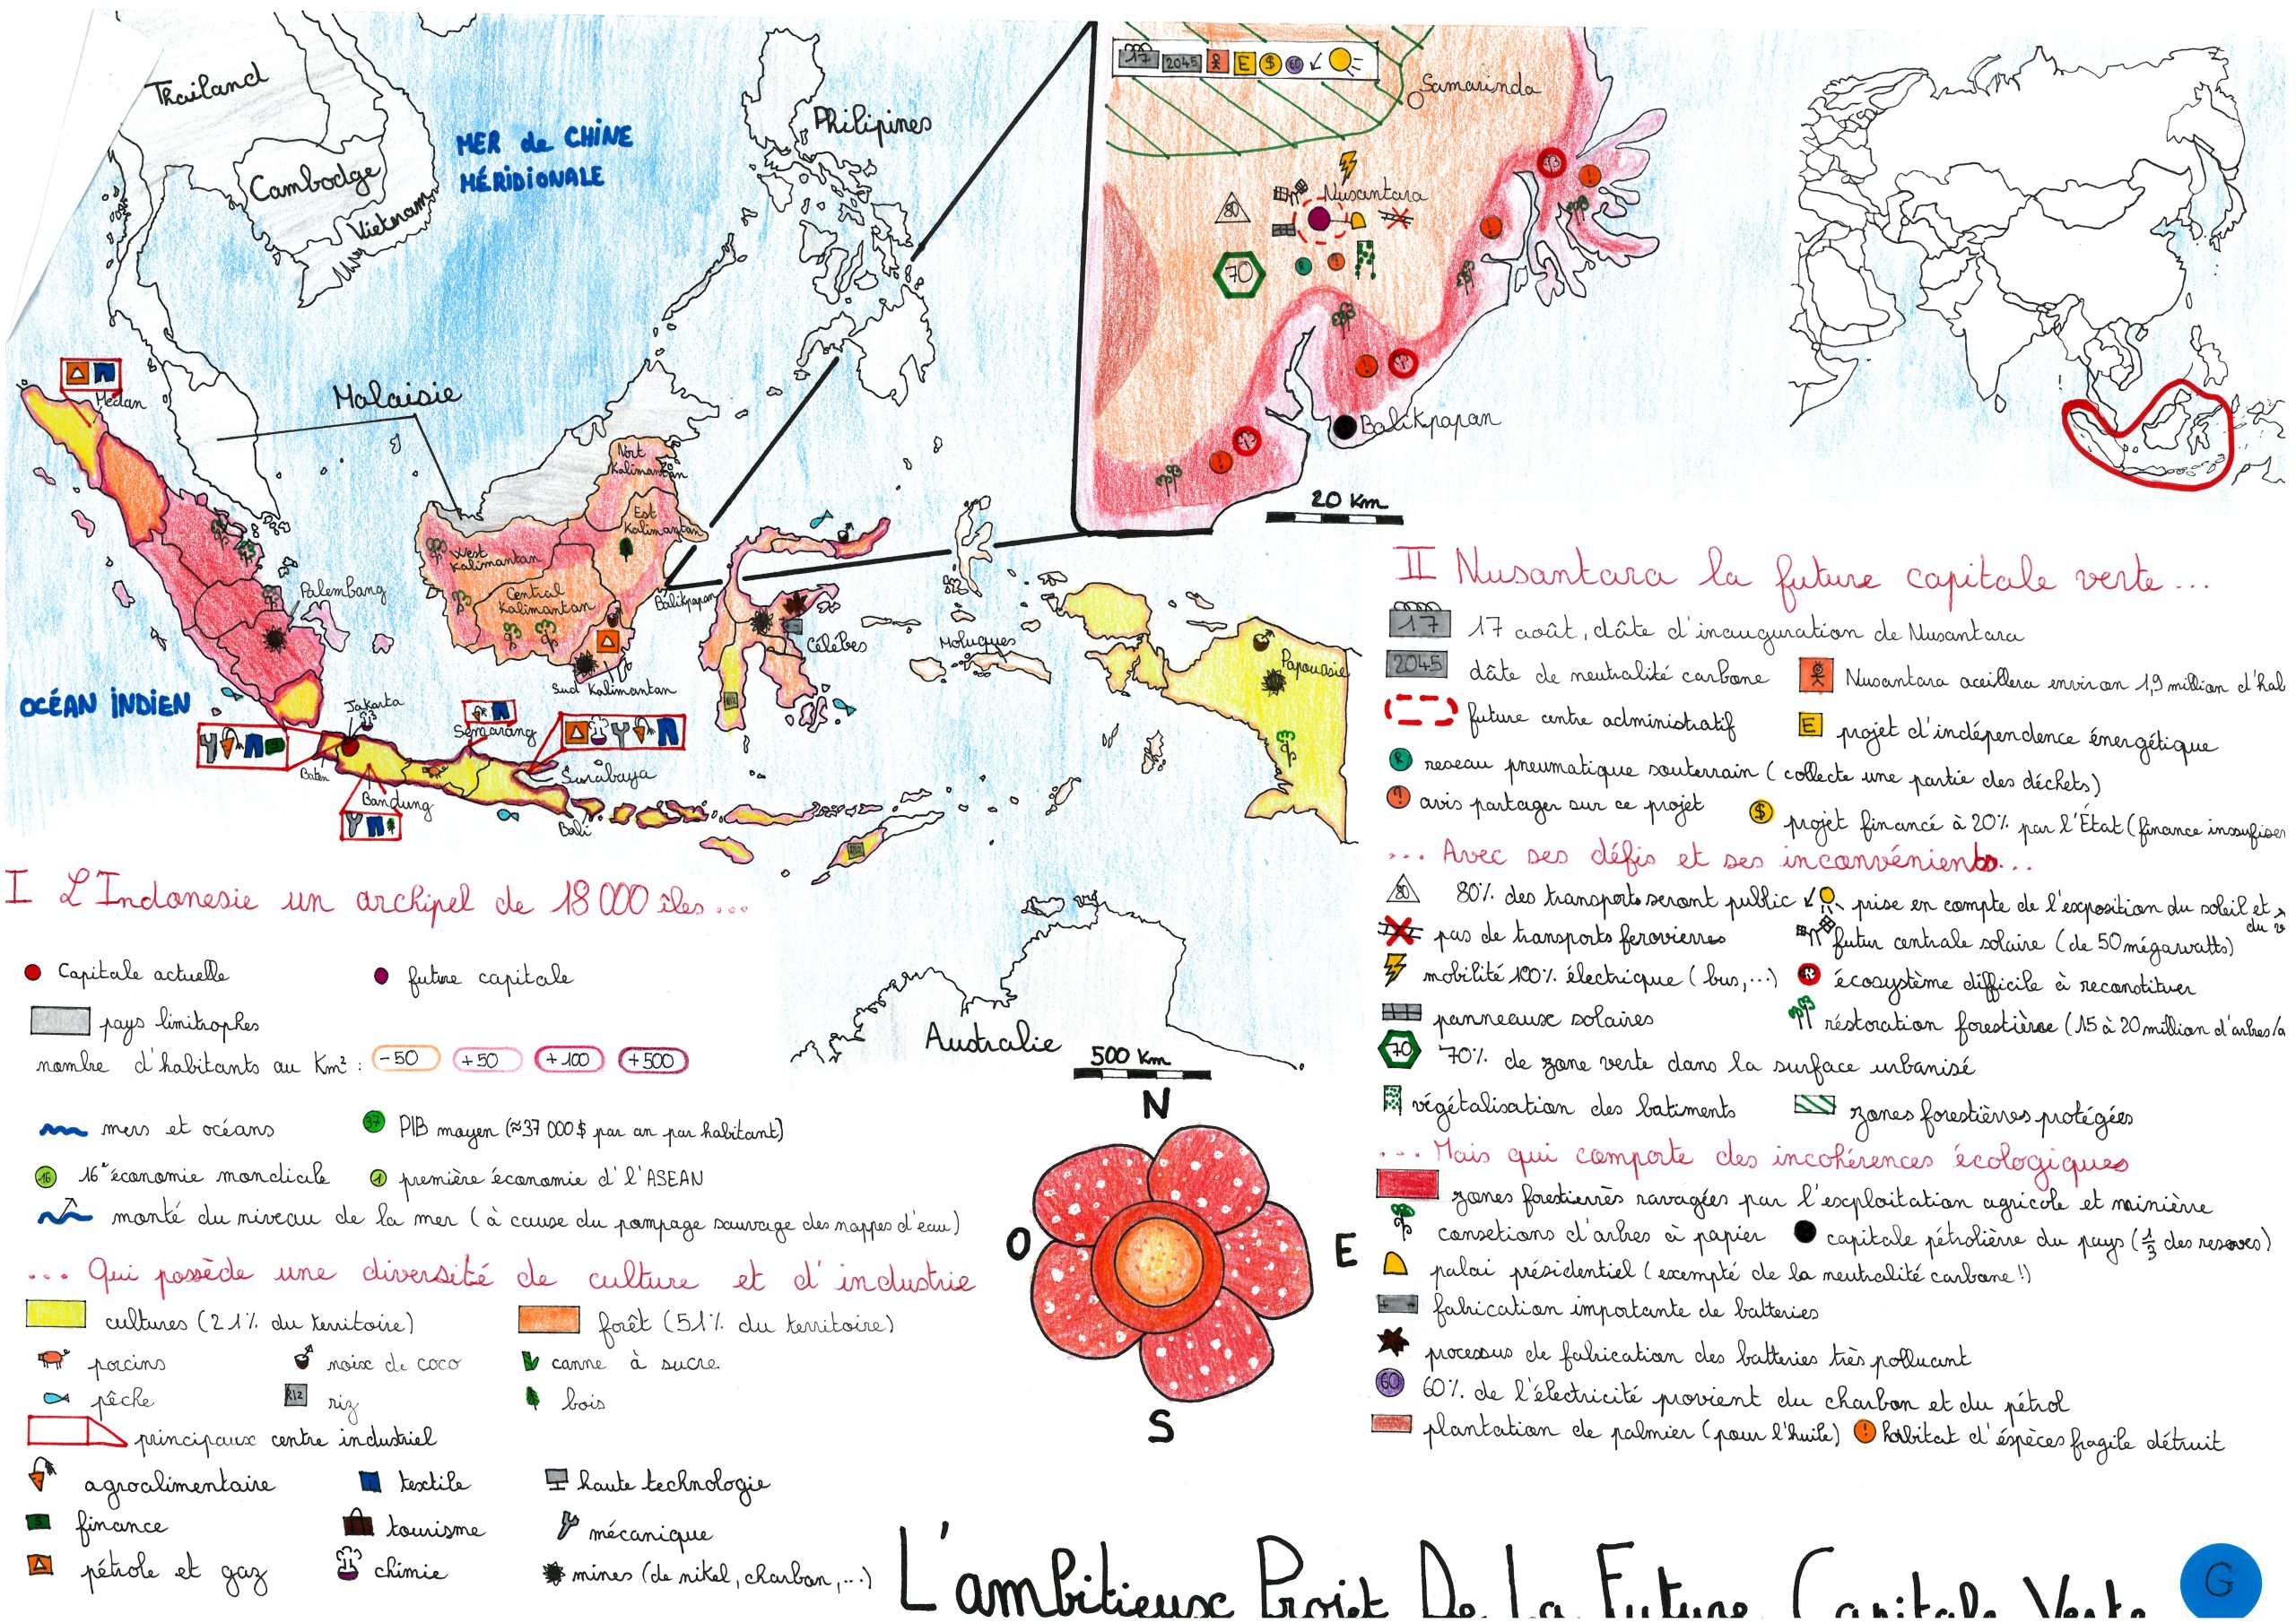 Thailand
Cambodge
Vietnam
MER de CHINE
MÉRIDIONALE
Philipines
Malaisie
Medan
Palembang
OCÉAN INDIEN
Jakarta
Baten
Bandung
Semarang
Surabaya
Bali
Nort
Kalimantan
Est
Kalimantan
West
Kalimantan
Central
Kalimantan
Sud Kalimantan
Balikpapan
Célèbes
Moluques
Papouasie
RIZ
Australie
500 Km
17 2045 E $ 60
Samarinda
Nusantara
80
70
R
!
Balikpapan
20 Km
N
O
E
S
I L'Indonesie un archipel de 18 000 îles...
Capitale actuelle
future capitale
pays limitrophes
nombre d'habitants au Km² : -50 +50 +100 +500
mers et océans
37 PIB moyen (≈37 000 $ par an par habitant)
16 16e économie mondiale
1 première économie d'l'ASEAN
monté du niveau de la mer (à cause du pompage sauvage des nappes d'eau)
... Qui possède une diversité de culture et d'industrie
cultures (21% du territoire)
forêt (51% du territoire)
porcins
noix de coco
canne à sucre
pêche
RIZ riz
bois
principaux centre industriel
agroalimentaire
textile
haute technologie
finance
tourisme
mécanique
pétrole et gaz
chimie
mines (de nikel, charbon,...)
II Nusantara la future capitale verte...
17 17 août, dâte d'inauguration de Nusantara
2045 dâte de neutralité carbone
Nusantara aceillera environ 1,9 million d'hab
future centre administratif
E projet d'indépendence énergétique
R reseau pneumatique souterrain (collecte une partie des déchets)
! avis partager sur ce projet
$ projet financé à 20% par l'État (finance insufisen
... Avec ses défis et ses inconvénients...
80 80% des transports seront public
prise en compte de l'exposition du soleil et
du v
pas de transports ferovierres
futur centrale solaire (de 50 mégawatts)
mobilité 100% électrique (bus,...)
R écosystème difficile à reconstituer
panneaux solaires
réstoration forestière (15 à 20 million d'arbres/a
70 70% de zone verte dans la surface urbanisé
végétalisation des batiments
zones forestièrres protégées
... Mais qui comporte des incohérences écologiques
zones forestierrès ravagées par l'exploitation agricole et minière
consetions d'arbres à papier
capitale pétrolièrre du pays (1/3 des reserves)
palai présidentiel (exempté de la neutralité carbone!)
fabrication importante de batteries
processus de fabrication des batteries très polluant
60 60% de l'électricité provient du charbon et du pétrol
plantation de palmier (pour l'huile)
! habitat d'éspèces fragile détruit
L'ambitieux Projet De La Future Capitale Verte
G